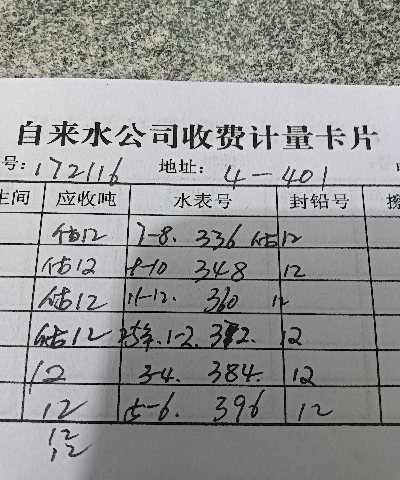 自来水公司收费计量卡片
号: 172116 地址: 4-401
生间 应收吨 水表号 封铅号
估12 7-8. 336 估12
估12 9-10 348 12
估12 11-12. 360 12
估12 25年.1-2. 372. 12
12 3-4. 384. 12
12 5-6. 396 12
12
12